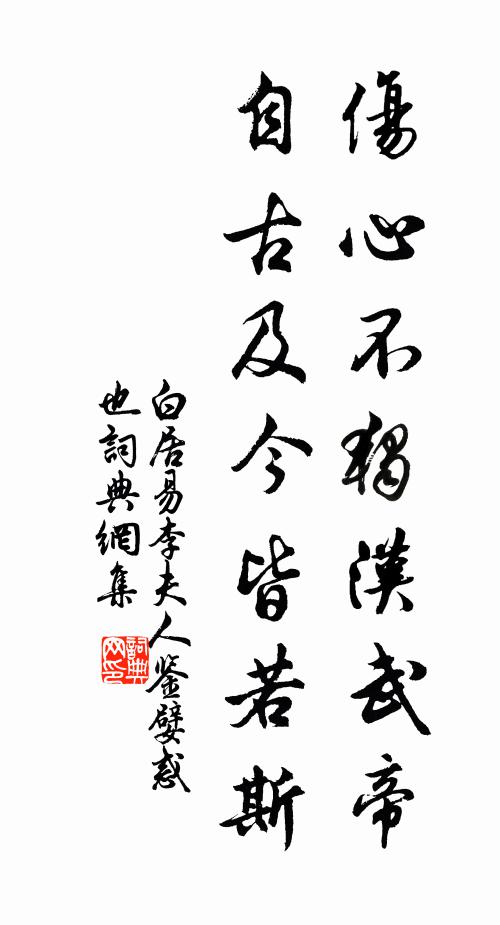 傷心不獨漢武帝
自古及今皆若斯
白居易李夫人鉴嬖惑
也詞典網集
詞典
网印